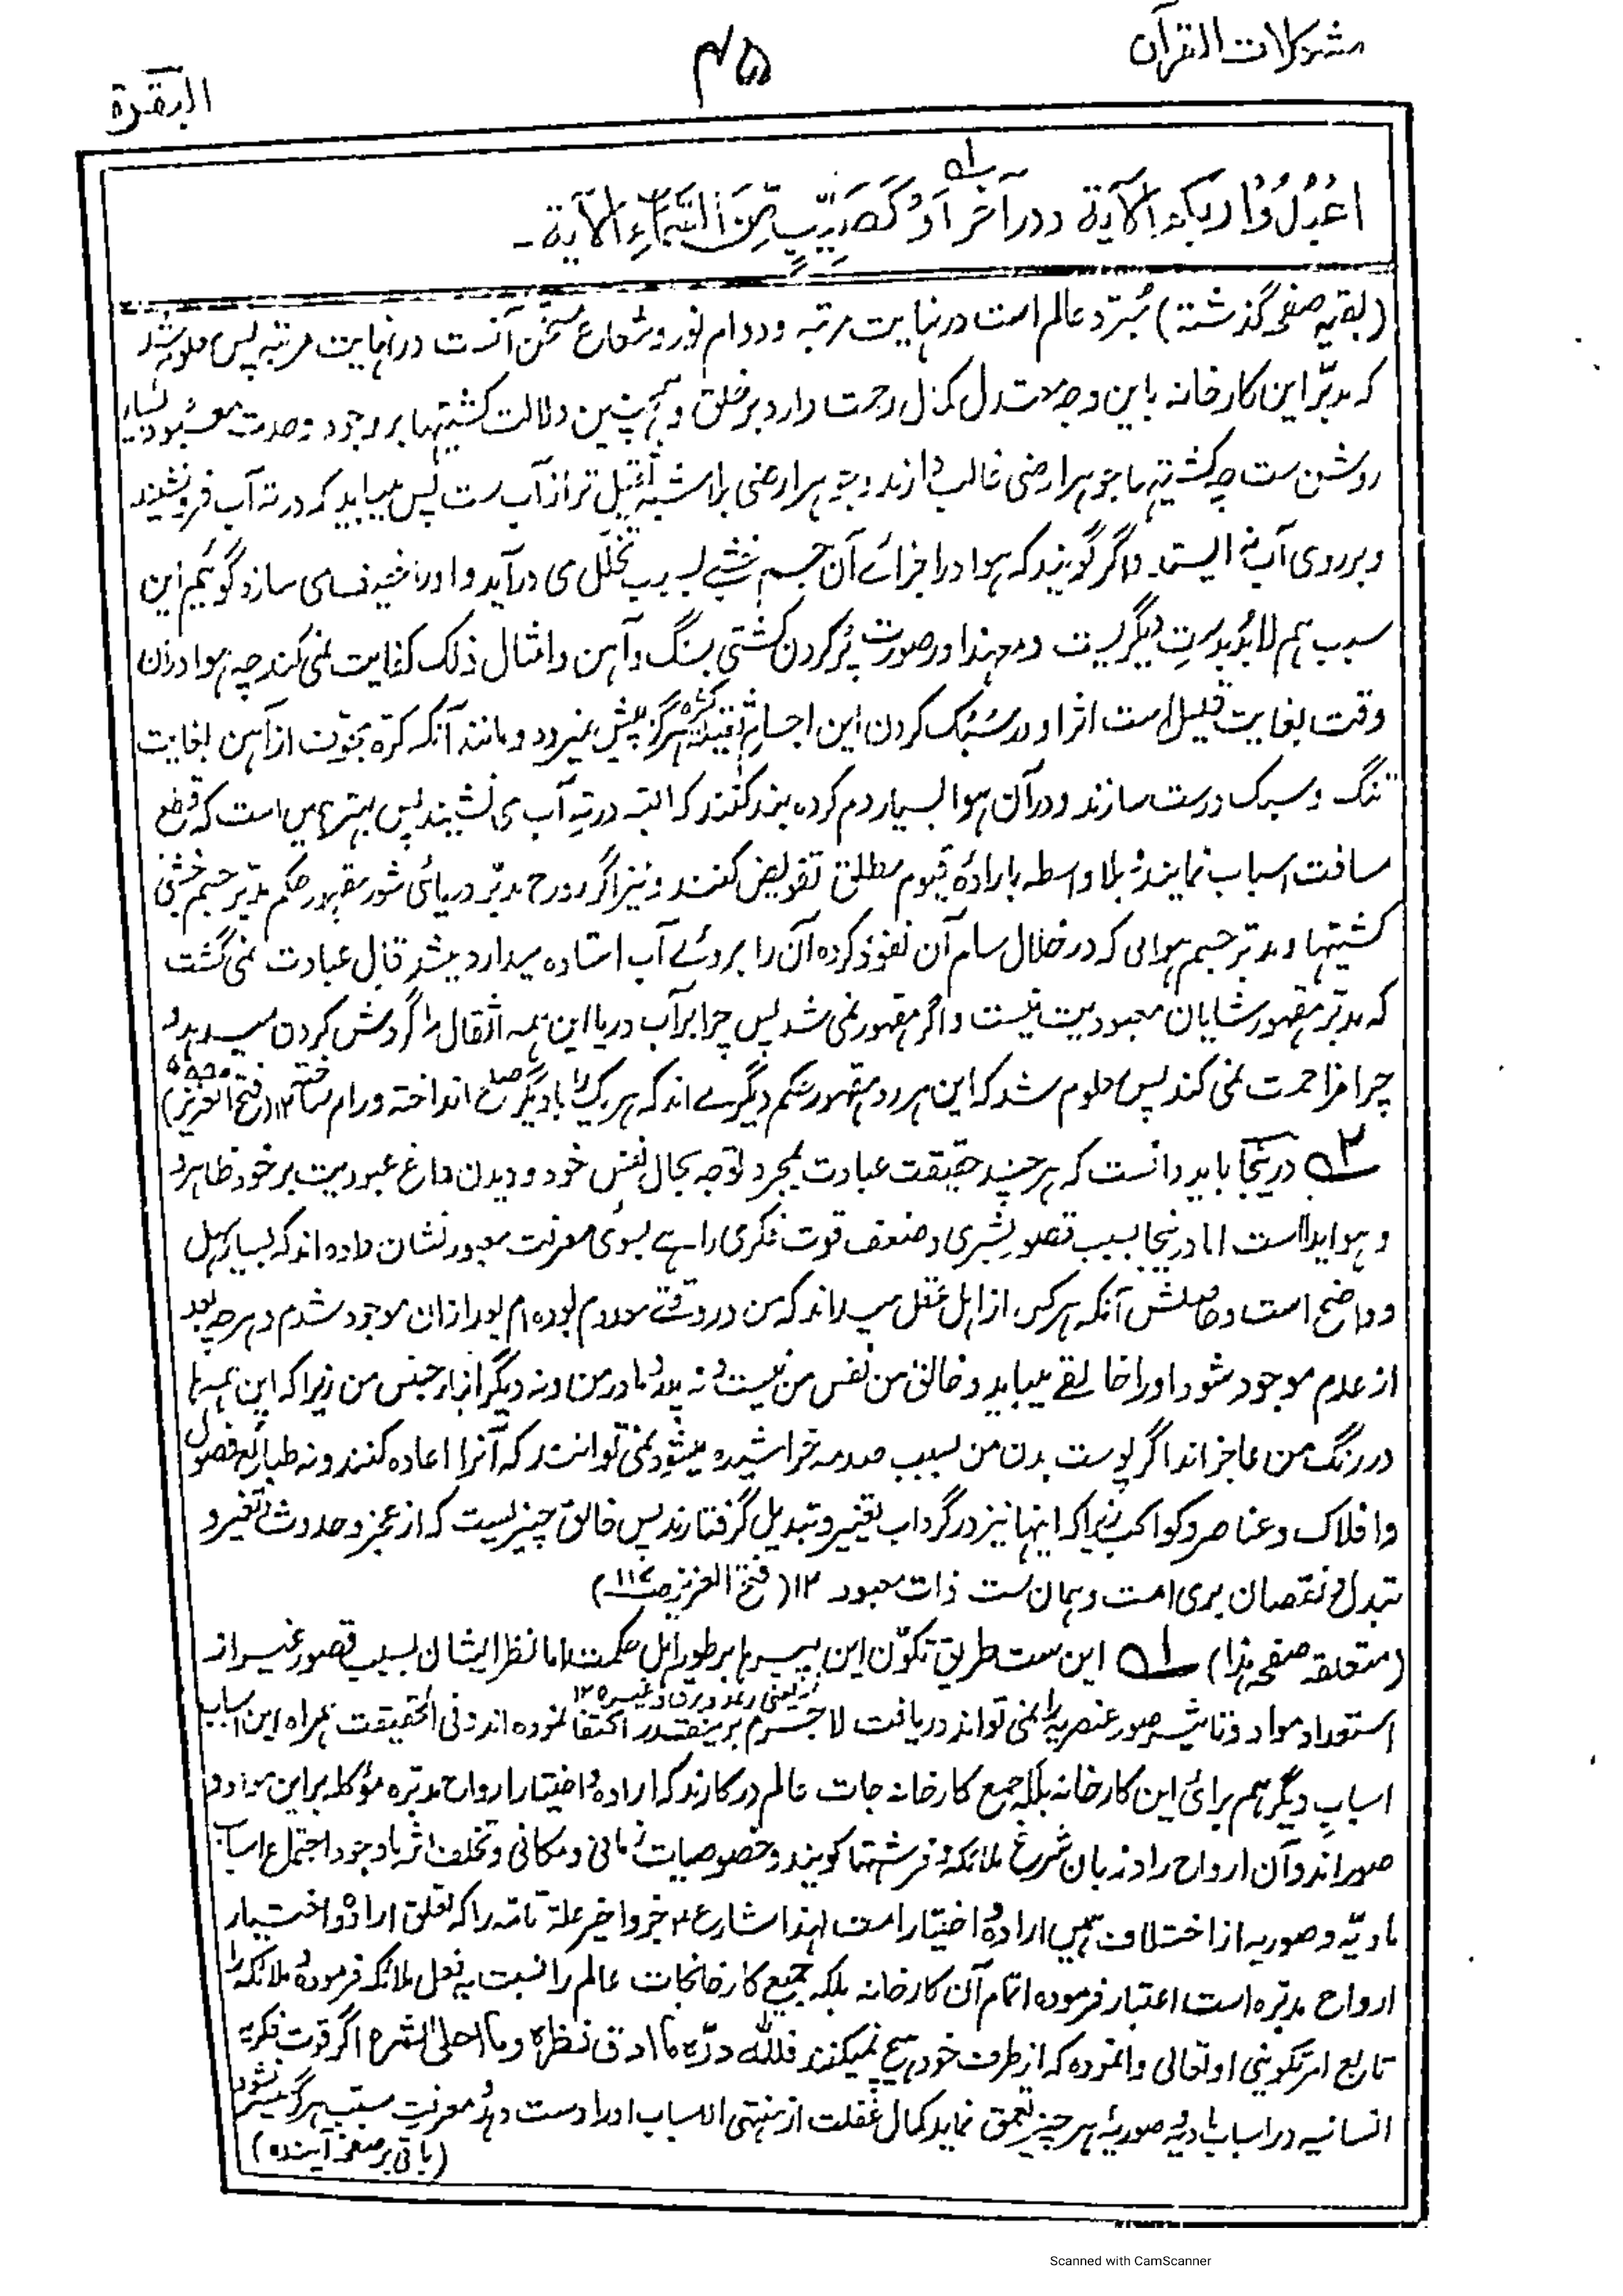 مشکلات القرآن
۴۵
البقرة
اعْبُدُوْا ربکم الآیة ودر آخر اَوْ كَصَيِّبٍ مِّنَ السَّمَآءِ الآیة ۔
(بقیه صفحه گذشته) مُبرّد عالم است در نهایت مرتبه و دوام نور و شعاع مسخن آنست در نهایت مرتبه پس معلوم شد
که مدبّر این کارخانه باین وجه معتدل کمال رحمت دارد بر خلق و همچنین دلالت کشتیها بر وجود وحدت معبود بسیار
روشن ست چه کشتیها جوهر ارضی غالب دارند و جوهر ارضی بلا شبه ثقیل تر از آب ست پس میباید که در ته آب فرو نشیند
و بر روی آب نه ایستد و اگر گویند که هوا در اجزائے آن جسم خشبے بسبب تخلّل می درآید و او را خفیف می سازد گوئیم این
سبب هم لابُد بدست دیگریست و معهذا در صورت پُر کردن کشتی بسنگ و آهن و امثال ذلک کفایت نمی کند چه هوا در آن
وقت بغایت قلیل است اثر او در سُبُک کردن این اجسام ثقیله کثیره هرگز پیش نمیرود و مانند آنکه کرّه مجوّف از آهن بغایت
تنگ و سبک درست سازند و در آن هوا بسیار دم کرده بند کنند که البته در ته آب می نشیند پس بهتر همین است که قطع
مسافت اسباب نمایند و بلا واسطه بارادۂ قیوم مطلق تفویض کنند و نیز اگر روح مدبّر دریائی شور مقهور حکم مدبّر جسم خشبی
کشتیها و مدبّر جسم هوائی که در خلال مسام آن نفوذ کرده آن را بروئے آب استاده میدارد میشد قابل عبادت نمی گشت
که مدبّر مقهور شایان معبودیت نیست و اگر مقهور نمی شد پس چرا بر آب دریا این همه اثقال را گردش کردن میدهد و
چرا مزاحمت نمی کند پس معلوم شد که این هر دو مقهور حکم دیگرے اند که هر یک را با دیگر صلح انداخته و رام ساخته ۱۲ (فتح العزیز)
۲؎ در ینجا باید دانست که هر چند حقیقت عبادت بمجرد توجه بحال نفس خود و دیدن داغ عبودیت بر خود ظاهر و
و هویدا است اما در ینجا بسبب قصور بشری و ضعف قوت فکری راہے بسوئ معرفت معبود نشان داده اند که بسیار سهل
و واضح است و حاصلش آنکه هر کس از اهل عقل میداند که من در وقتے معدوم بوده ام بعد از ان موجود شدم و هر چه بعد
از عدم موجود شود او را خالقے میباید و خالق من نفس من نیست و نه پدر و مادر من و نه دیگر ابنار جنس من زیرا که این همه ها
در رنگ من عاجز اند اگر پوست بدن من بسبب صدمه خراشیده میشود نمی توانند که آنرا اعاده کنند و نه طبائع فصول
و افلاک و عناصر و کواکب زیرا که اینها نیز در گرداب تغییر و تبدیل گرفتارند پس خالق چیزیست که از عجز و حدوث و تغیر و
تبدل و نقصان بری است و همان ست ذات معبود ۱۲ (فتح العزیز ص۱۱۲)
(متعلقه صفحه هذا) ۱؎ این ست طریق تکوّن این چیزها بر طور اهل حکمت اما نظر ایشان بسبب قصور غیر از
یعنی رعد و برق وغیره ۱۲
استعداد مواد و تاثیر صور عنصریه را نمی تواند دریافت لا جرم بر ینقدر اکتفا نموده اند و فی الحقیقت همراه این اسباب
اسباب دیگر هم برائ این کارخانه بلکه جمیع کارخانه جات عالم در کارند که اراده و اختیار ارواح مدبّره مؤکله بر این مواد و
صور اند و آن ارواح را در زبان شرع ملائکه و فرشتها گویند و خصوصیات زمانی و مکانی و تخلف اثر باوجود اجتماع اسباب
مادیّه و صوریه از اختلاف همین اراده و اختیار است لهذا شارع جزو اخیر علة تامّه را که تعلق اراده و اختیار
ارواح مدبّره است اعتبار فرموده اتمام آن کارخانه بلکه جمیع کارخانجات عالم را نسبت به فعل ملائکه فرموده و ملائکه را
تابع امر تکوینی او تعالی وانموده که از طرف خود هیچ نمیکنند فلله درّه ما ادق نظره وما احلی الشرع اگر قوت فکریه
انسانیه در اسباب مادیه و صوریه هر چیز تعمق نماید کمال غفلت از منتهی الاسباب او را دست دهد و معرفت مسبب هرگز میسر نشود
(باقی بر صفحه آینده)
Scanned with CamScanner